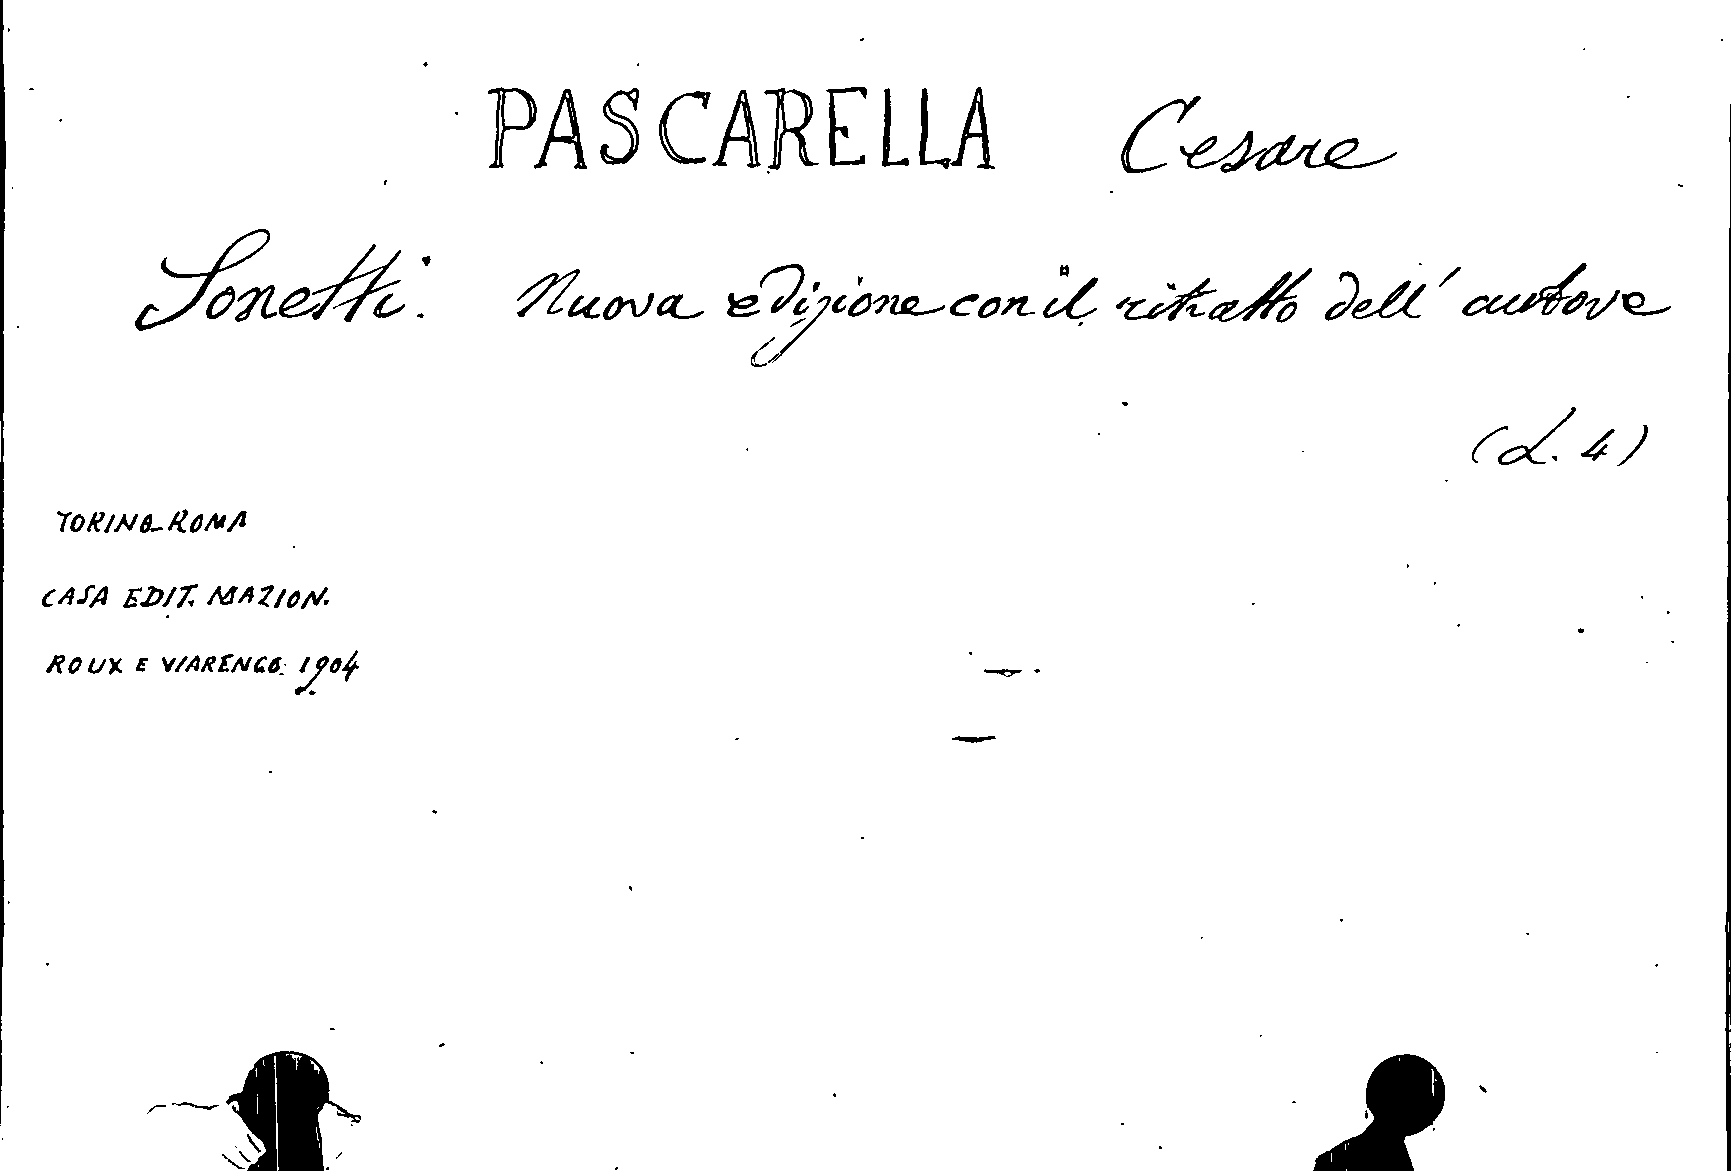 PASCARELLA Cesare
Sonetti. Nuova edizione con il ritratto dell' autore
(L. 4)
TORINO-ROMA
CASA EDIT. NAZION.
ROUX E VIARENGO. 1904